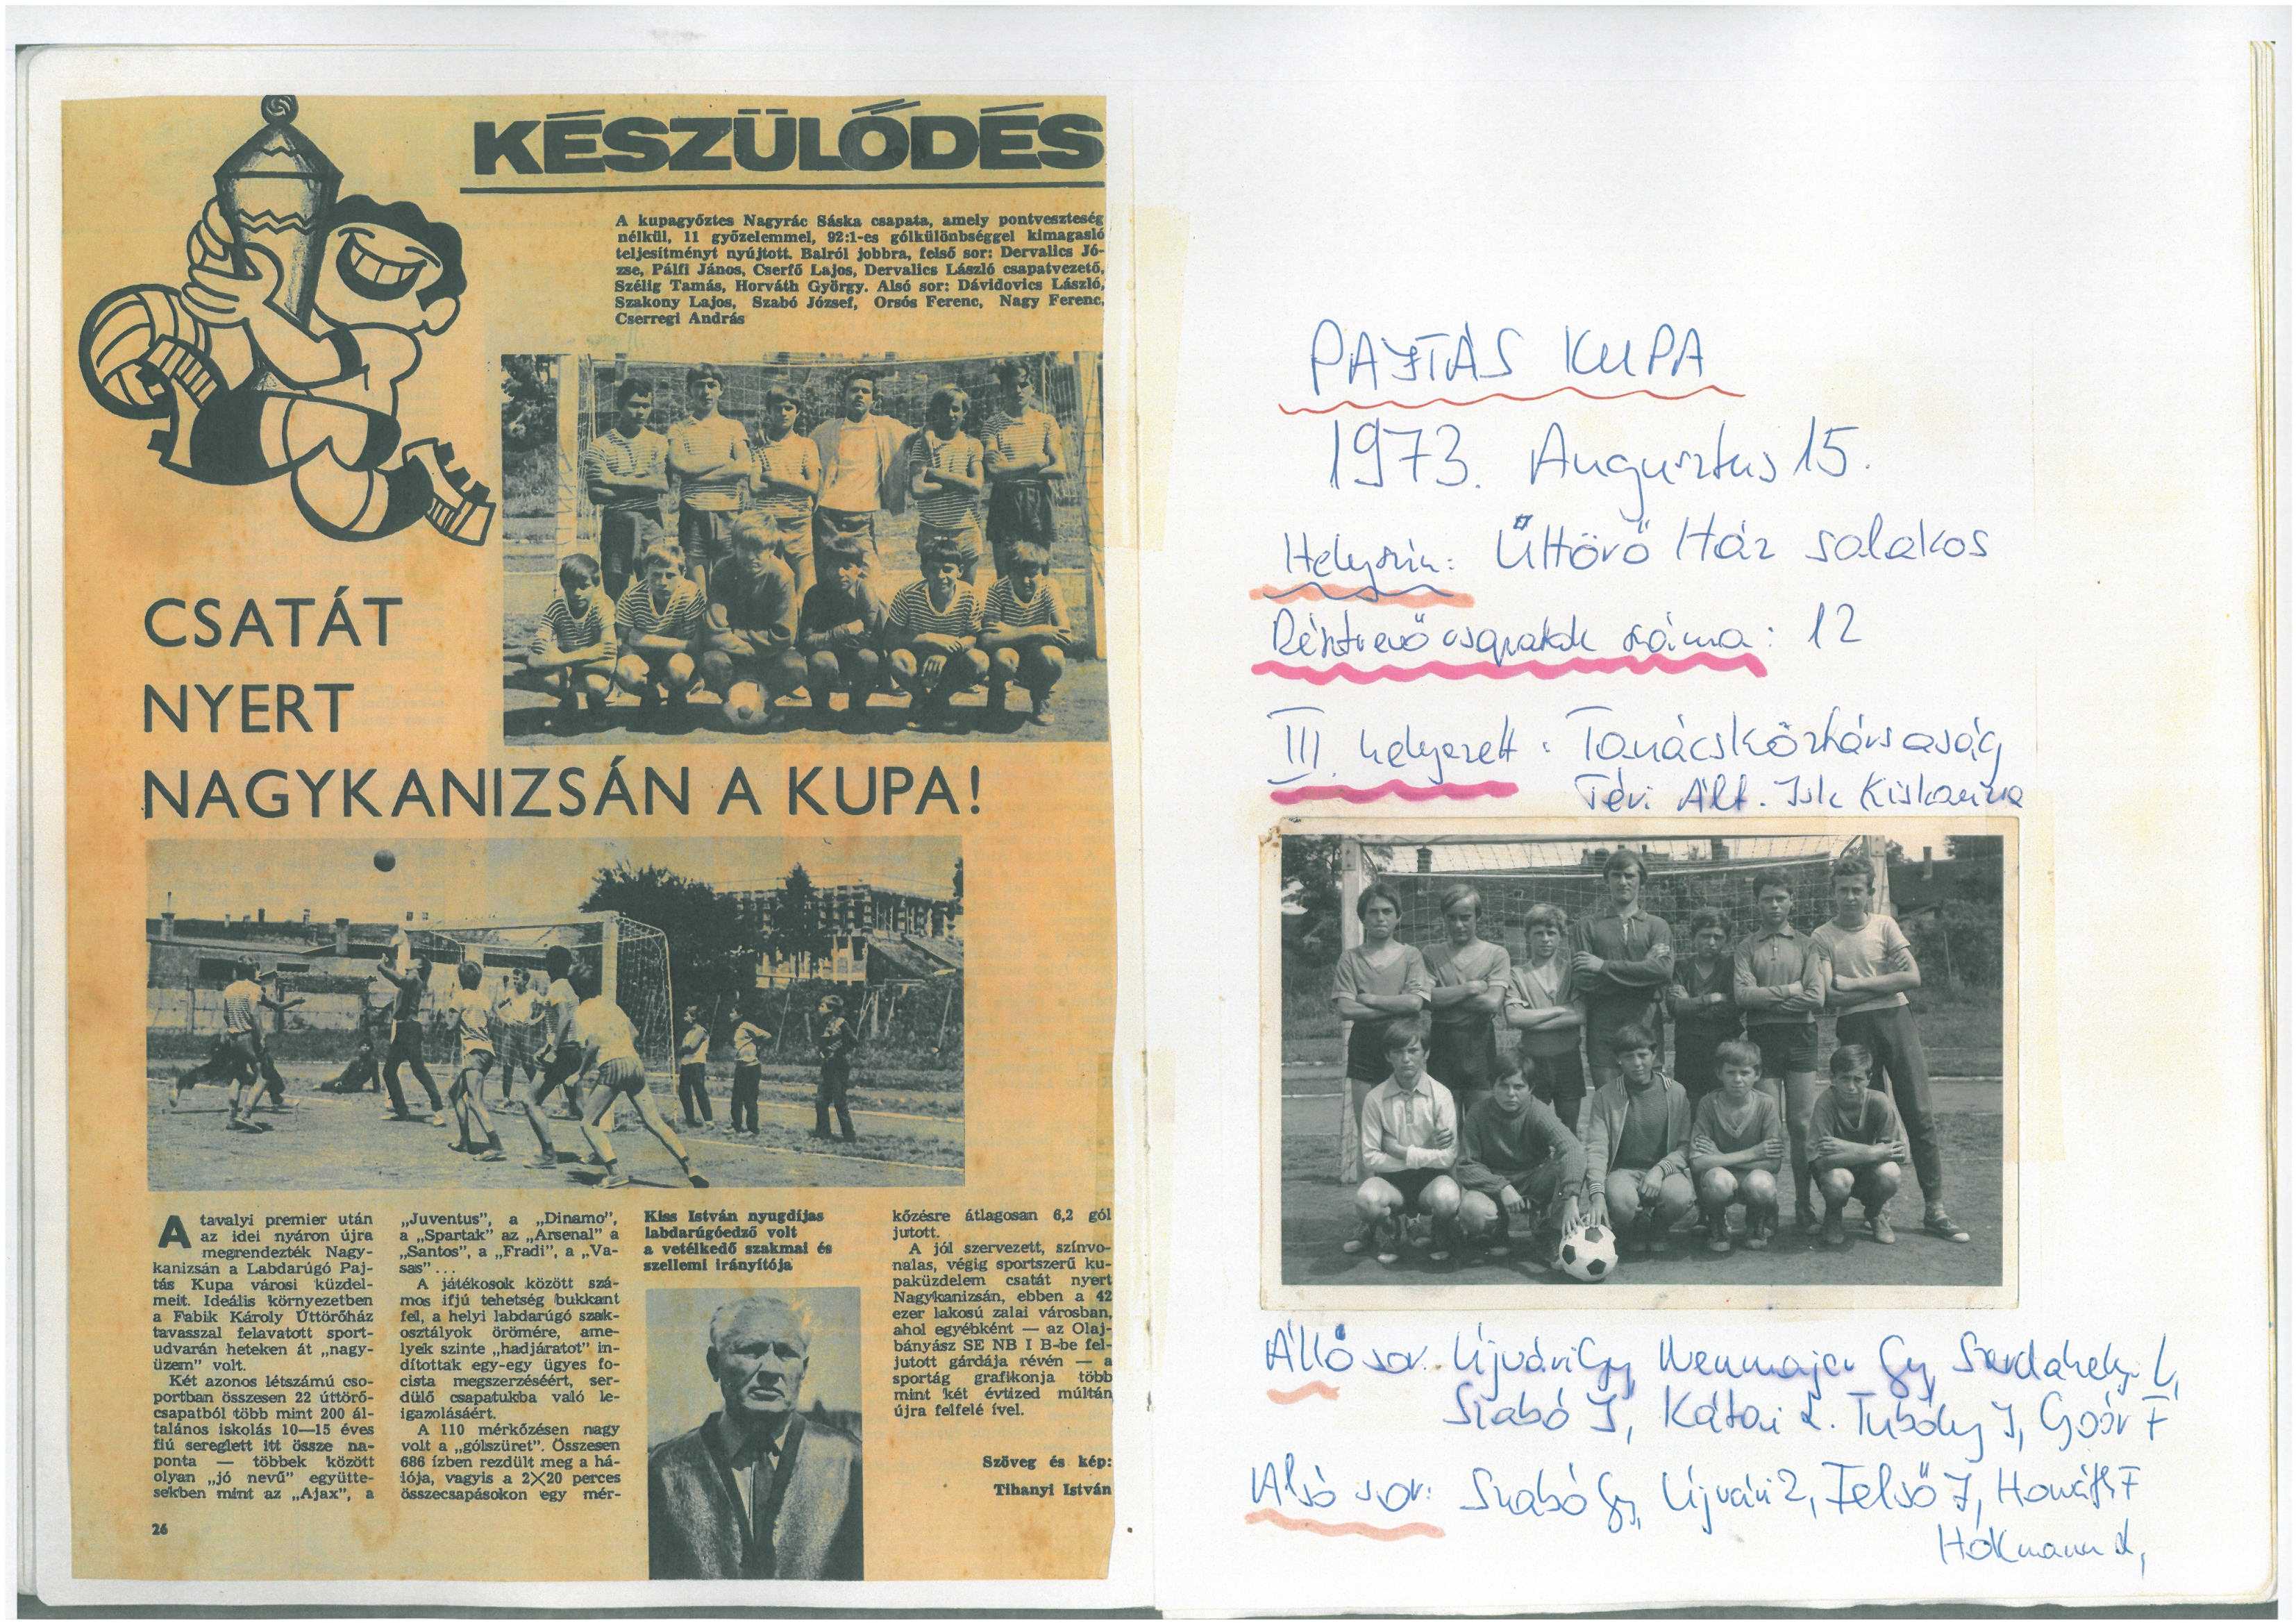 KÉSZÜLŐDÉS
A kupagyőztes Nagyrác Sáska csapata, amely pontveszteség
nélkül, 11 győzelemmel, 92:1-es gólkülönbséggel kimagasló
teljesítményt nyújtott. Balról jobbra, felső sor: Dervalics Jó-
zse, Pálfi János, Cserfő Lajos, Dervalics László csapatvezető,
Szélig Tamás, Horváth György. Alsó sor: Dávidovics László,
Szakony Lajos, Szabó József, Orsós Ferenc, Nagy Ferenc,
Cserregi András
CSATÁT
NYERT
NAGYKANIZSÁN A KUPA!
A tavalyi premier után
az idei nyáron újra
megrendezték Nagy-
kanizsán a Labdarúgó Paj-
tás Kupa városi küzdel-
meit. Ideális környezetben
a Fabik Károly Úttörőház
tavasszal felavatott sport-
udvarán heteken át „nagy-
üzem" volt.
Két azonos létszámú cso-
portban összesen 22 úttörő-
csapatból több mint 200 ál-
talános iskolás 10—15 éves
fiú sereglett itt össze na-
ponta — többek között
olyan „jó nevű" együtte-
sekben mint az „Ajax", a
„Juventus", a „Dinamo",
a „Spartak" az „Arsenal" a
„Santos", a „Fradi", a „Va-
sas" ...
A játékosok között szá-
mos ifjú tehetség bukkant
fel, a helyi labdarúgó szak-
osztályok örömére, ame-
lyek szinte „hadjáratot" in-
dítottak egy-egy ügyes fo-
cista megszerzéséért, ser-
dülő csapatukba való le-
igazolásáért.
A 110 mérkőzésen nagy
volt a „gólszüret". Összesen
686 ízben rezdült meg a há-
lója, vagyis a 2×20 perces
összecsapásokon egy mér-
Kiss István nyugdíjas
labdarúgóedző volt
a vetélkedő szakmai és
szellemi irányítója
kőzésre átlagosan 6,2 gól
jutott.
A jól szervezett, színvo-
nalas, végig sportszerű ku-
paküzdelem csatát nyert
Nagykanizsán, ebben a 42
ezer lakosú zalai városban,
ahol egyébként — az Olaj-
bányász SE NB I B-be fel-
jutott gárdája révén — a
sportág grafikonja több
mint két évtized múltán
újra felfelé ível.
Szöveg és kép:
Tihanyi István
26
PAJTÁS KUPA
1973. Augusztus 15.
Helyszín: Úttörő Ház salakos
Résztvevő csapatok száma: 12
III. helyezett: Tanácsköztársaság
Téri Ált. Isk Kiskanizsa
Álló sor: Újvári Gy, Neumajer Gy, Szerdahelyi L,
Szabó J, Kátai L. Tubóly J, Goór F
Alsó sor: Szabó Gy, Újvári Z, Felső J, Horváth F
Hokmann L,